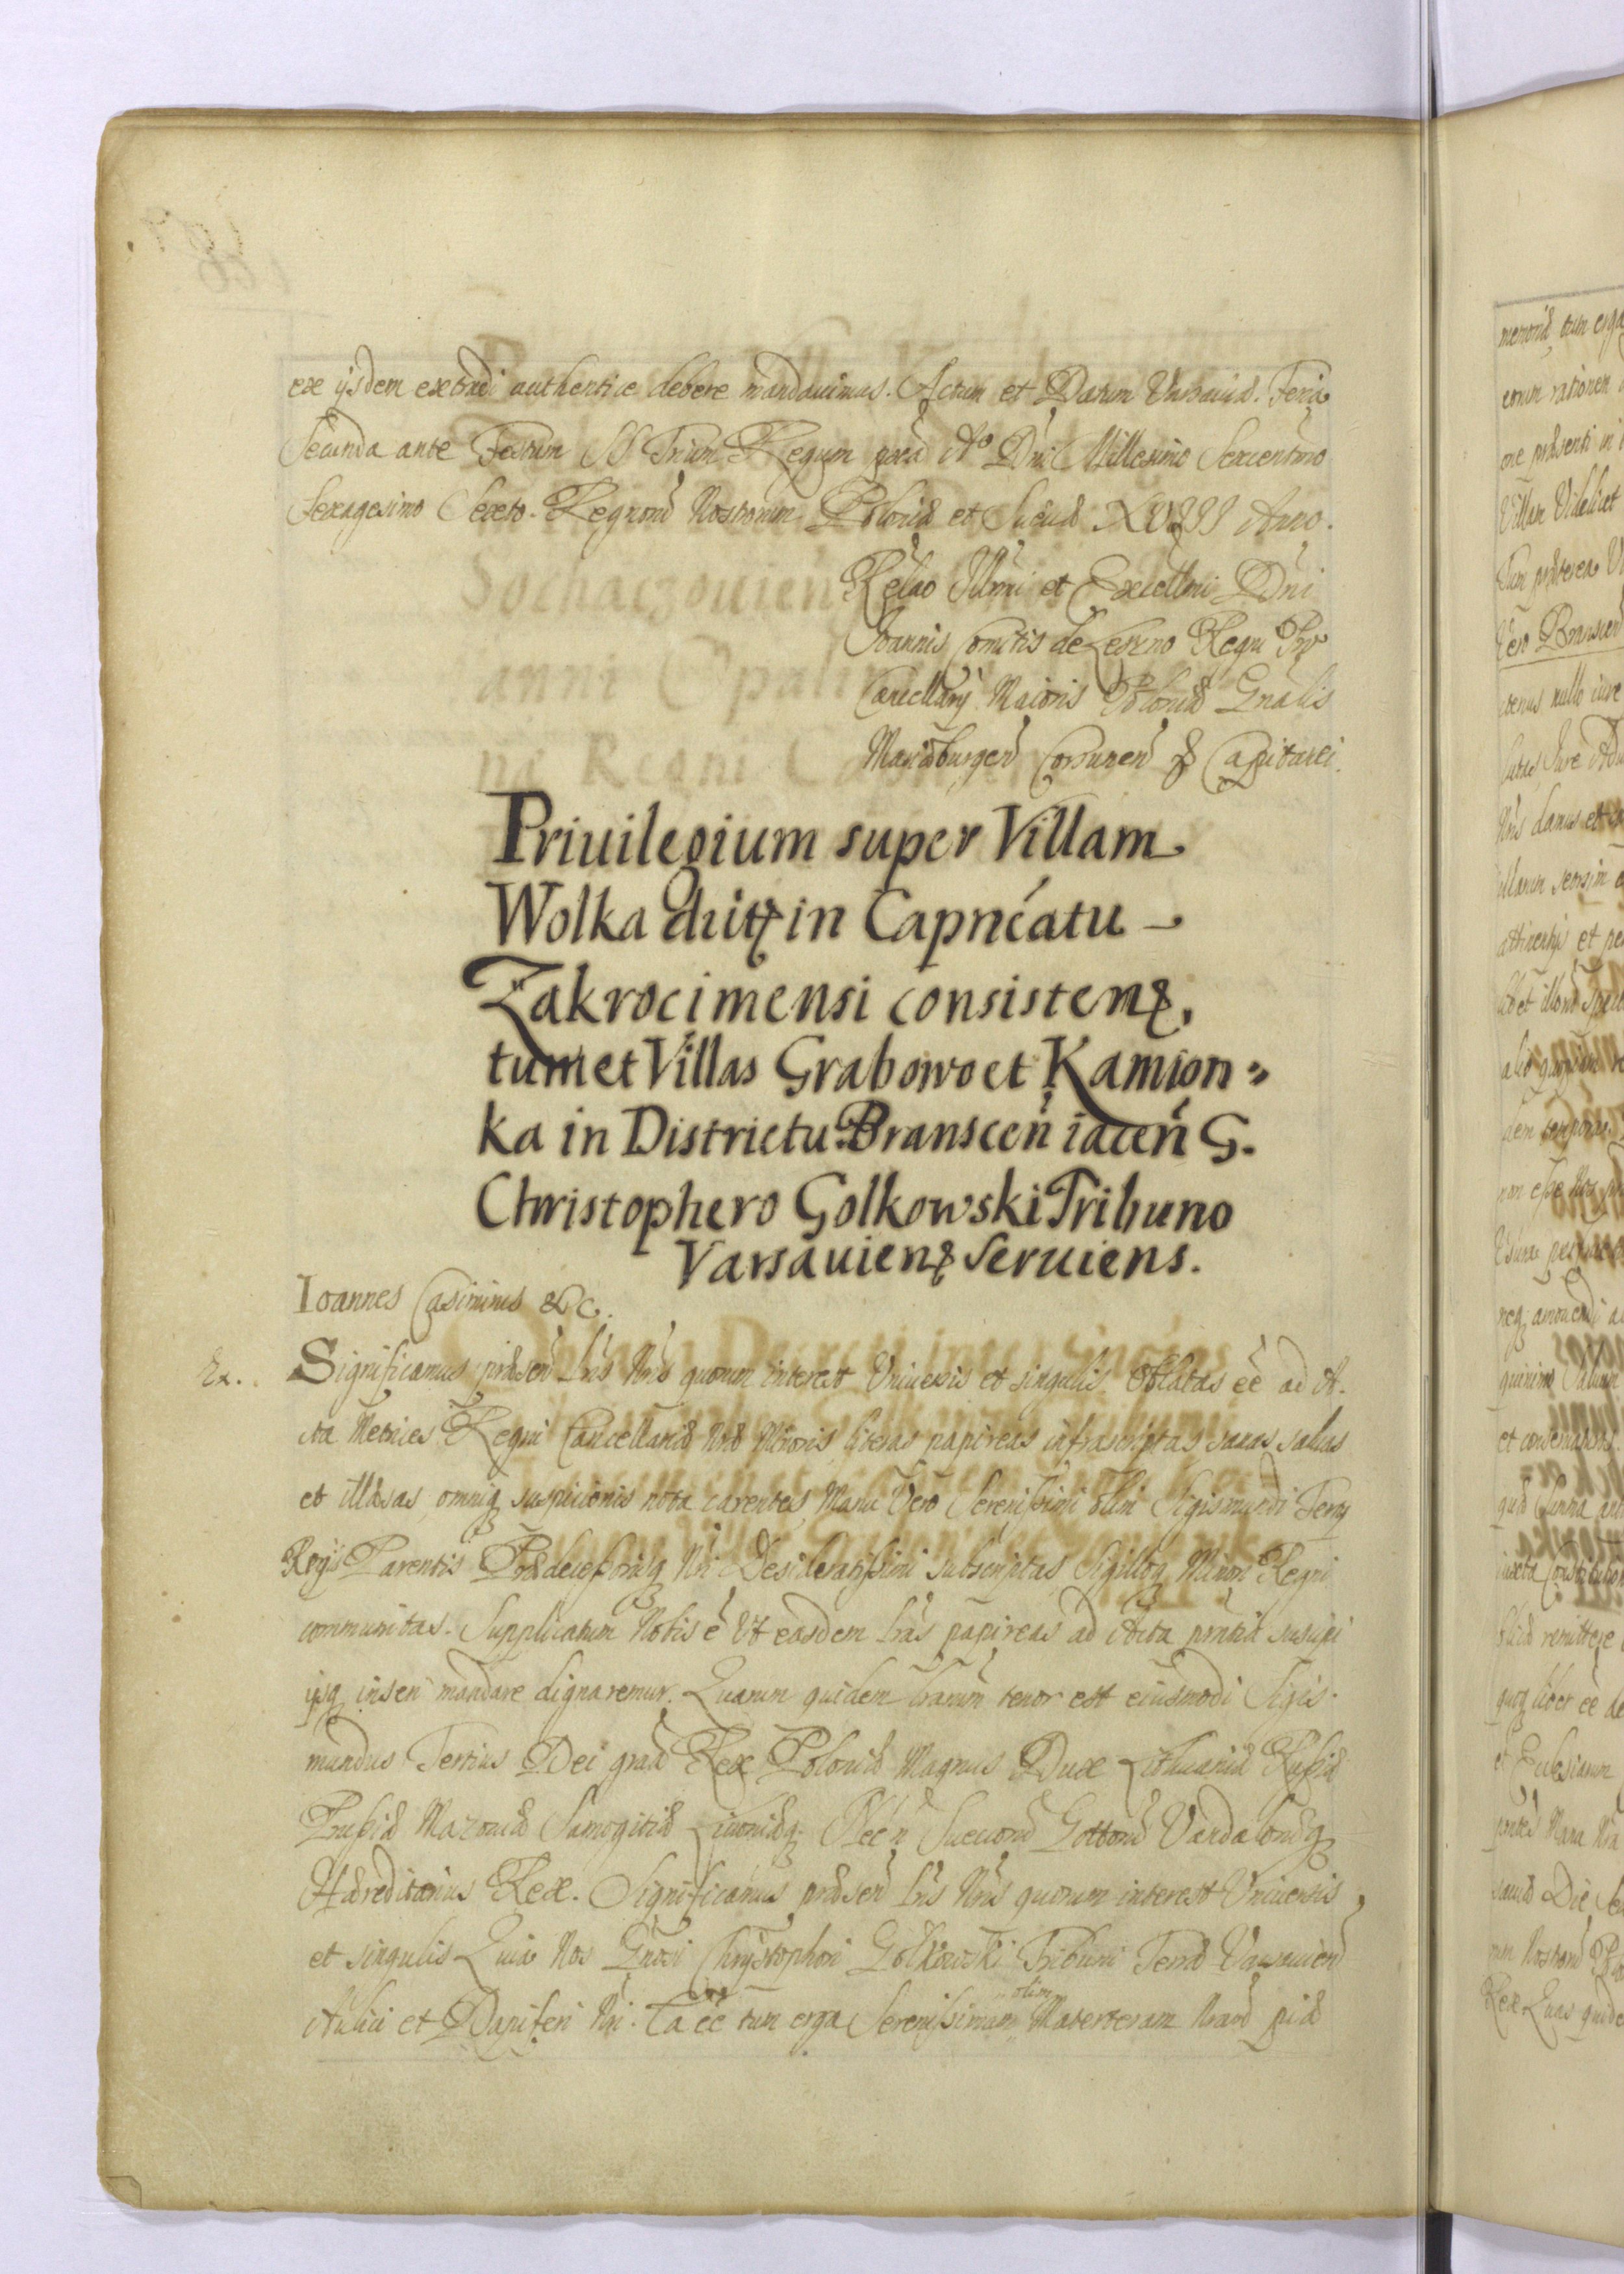 ex ijsdem extradi authentice debere mandauimus. Actum et Datum Varsauiæ. Feria
Secunda ante Festum SS Trium Regum Aº Dni Millesimo Sexcentmo
Sexagesimo Sexto. Regnorũ Nostrorum Poloniæ et Sueciæ XVIII Anno.
Relao Illmi et Excellmi Dni
Ioannis Comitis de Leszno Regni Pro
Cancellarij Maioris Poloniæ Gnalis
Mariæburgeñ Corsuneñ & Capitanei.
Priuilegium super Villam
Wolka dictꝫ in Capnéatu
Zakrocimensi consistenꝫ,
tum et Villas Grabowo et Kamion=
ka in Districtu Branscen iacen G.
Christophero Golkowski Tribuno
Varsauienꝫ Seruiens.
Ioannes Casimirus &c.
Ex. Significamus præseñ Lris Nris quorum interest Vniuersis et singulis. Oblatas eẽ ad A-
cta Metrices Regni Cancellariæ Nræ Minoris literas papireas infrascriptas sanas saluas
et illæsas, omniqꝫ suspicionis nota carentes, Manu Vero Serenissimi olim Sigismundi Tertij
Regis Parentis Prædecessorisqꝫ Nri Desideratissimi subscriptas Sigilloqꝫ Minori Regni
communitas. Supplicatum Nobis ẽ Vt easdem lras papireas ad Acta prntia suscipi
ijsqꝫ inseri mandare dignaremur. Quarum quidem lrarum tenor est eiusmodi Sigis-
mundus Tertius Dei graã Rex Poloniæ Magnus Dux Lithuaniæ Russiæ
Prussiæ Mazouiæ Samogitiæ Liuoniæqꝫ. Nec ñ Suecorũ Gottorũ Vandalorũqꝫ
Hæreditarius Rex. Significamus præseñ Lris Nris quorum interest Vniuersis
et singulis Quia Nos Gnosi Chrystophori Golkowski Tribuni Terræ Varsauieñ
Aulici et Dapiferi Nri. ea eẽ tum erga Serenissimam olim Materteram Nram piæ